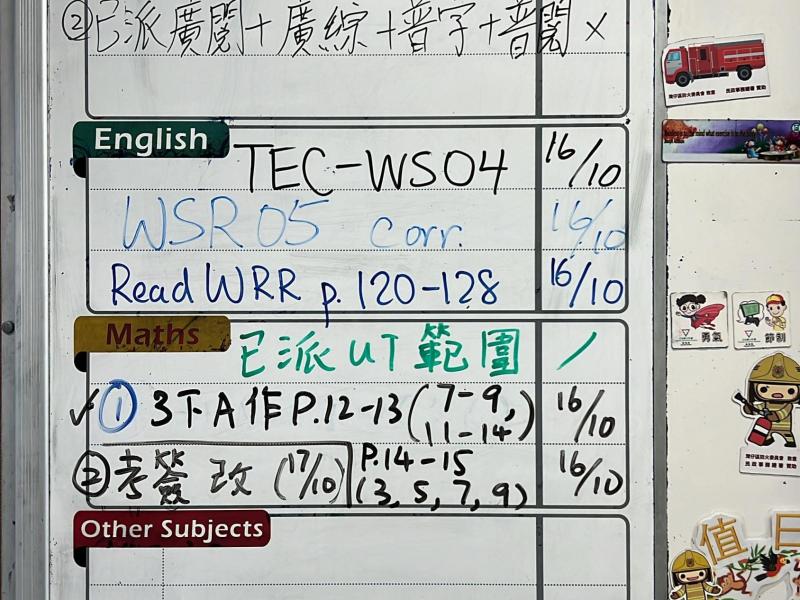 ②已派廣閱+廣綜+普字+普閱 ×
English
TEC-WS04 16/10
WSR05 corr. 16/10
Read WRR p. 120-128 16/10
Maths
已派UT範圍 /
✓ ① 3下A作P.12-13(7-9, 11-14) 16/10
② 考簽 改 (17/10) P.14-15 (3, 5, 7, 9) 16/10
Other Subjects
勇氣
節制
值日